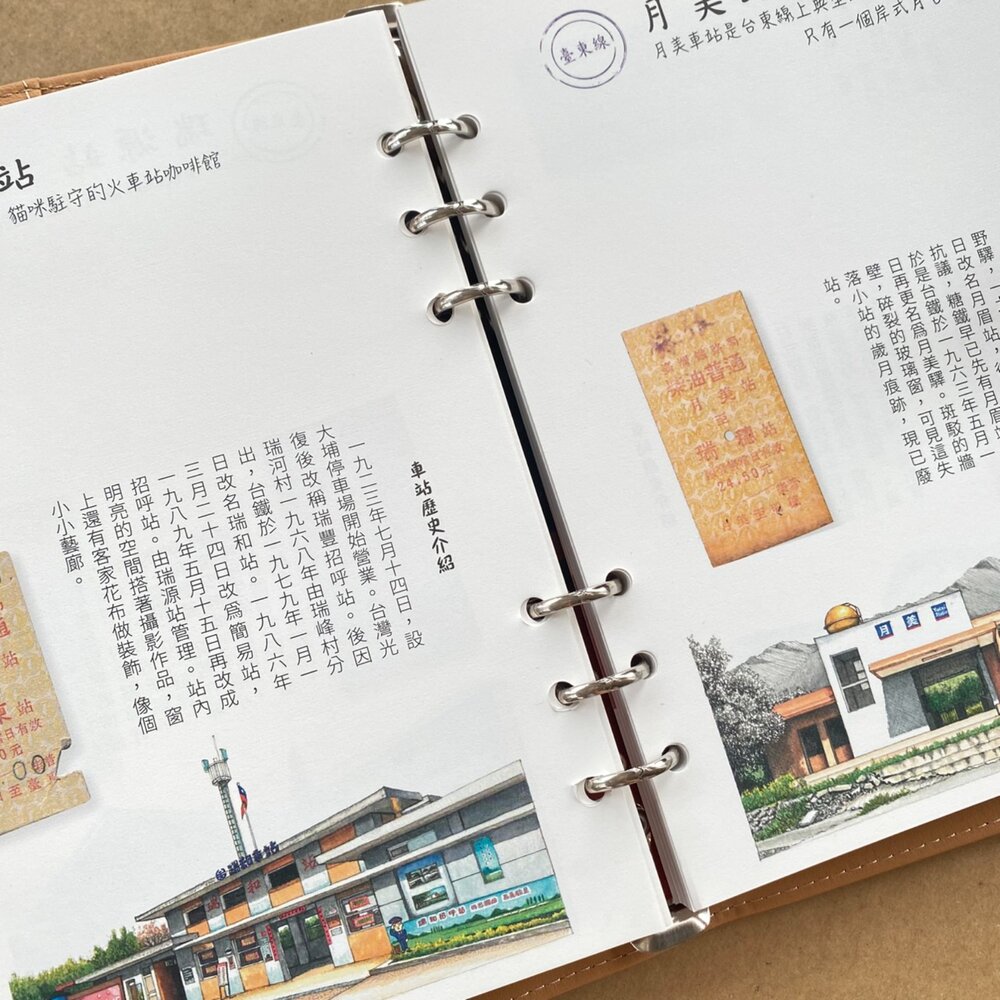 站
貓咪駐守的火車站咖啡館
車站歷史介紹
一九二三年七月十四日，設
大埔停車場開始營業。台灣光
復後改稱瑞豐招呼站。後因
瑞河村一九六八年由瑞峰村分
出，台鐵於一九七九年一月一
日改名瑞和站。一九八六年
三月二十四日改為簡易站，
一九八九年五月十五日再改成
招呼站。由瑞源站管理。站內
明亮的空間搭著攝影作品，窗
上還有客家花布做裝飾，像個
小小藝廊。
站
東站
00
瑞和車站
瑞和招呼站
臺東線
月美
月美車站是台東線上
只有一個岸式月
野驛，一
日改名月眉站，
抗議，糖鐵早已先有月眉站
於是台鐵於一九六三年五月一
日再更名為月美驛。斑駁的牆
壁，碎裂的玻璃窗，可見這失
落小站的歲月痕跡，現已廢
站。
柴油普通
月美站
至
瑞穗站
24.50元
月美